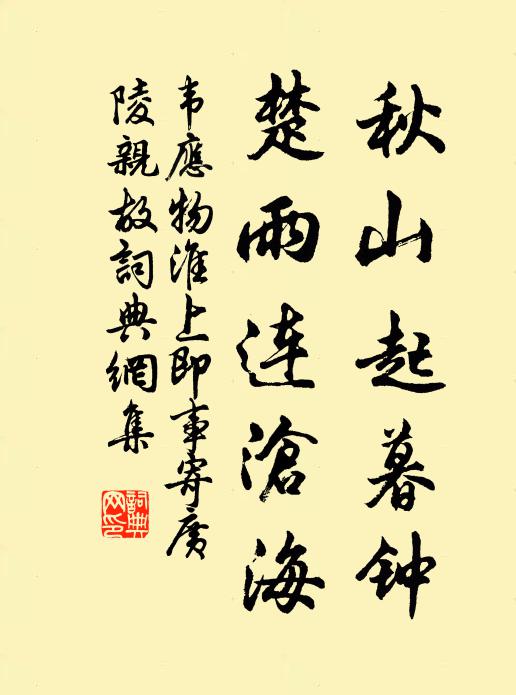 秋山起暮钟
楚雨连滄海
韦應物淮上即事寄广
陵親故詞典網集
詞典网印